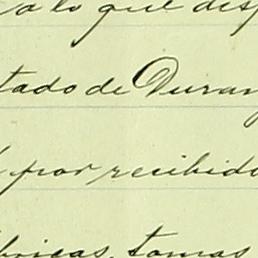 a lo que dis
tado de Duran
por recibido
bricas, tomas